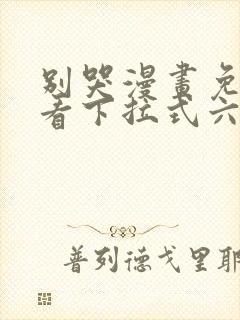 別哭漫畫免
看下拉式六
普列德戈里耶